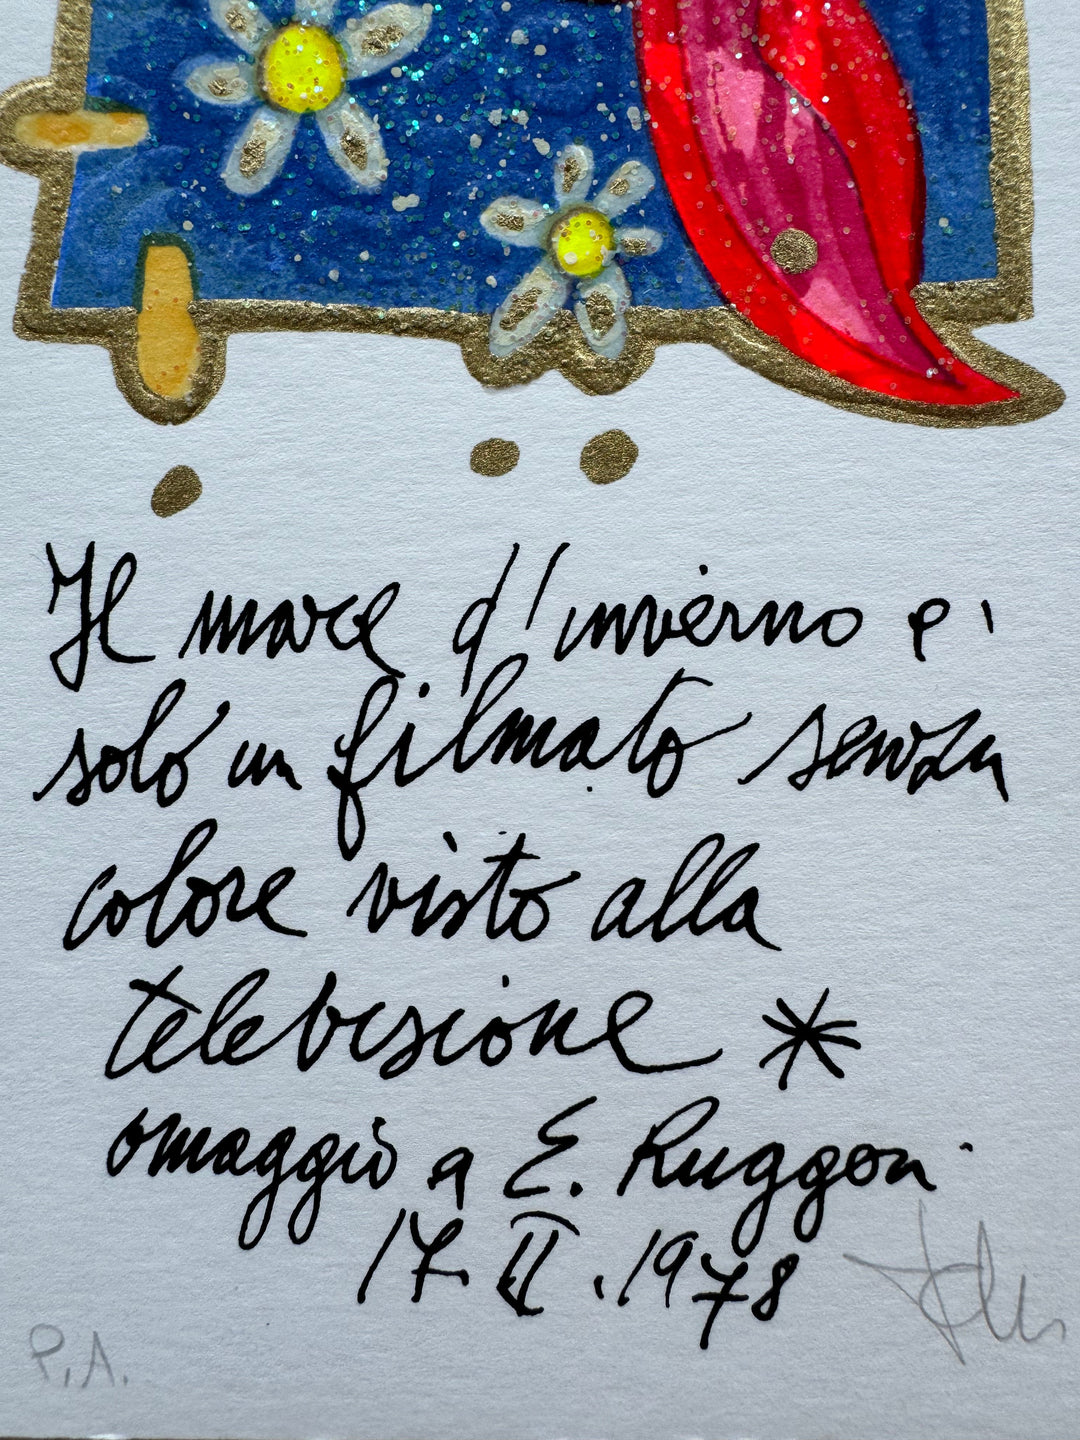 Il mare d'inverno e'
solo un filmato senza
colore visto alla
televisione *
omaggio a E. Ruggeri
17.II.1978
P.A.